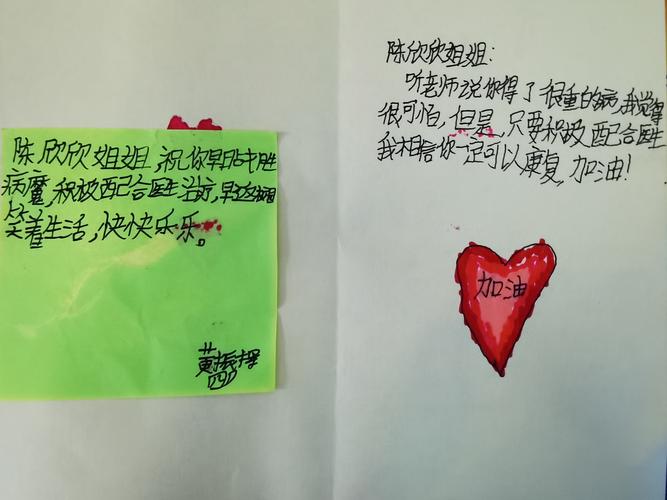 陈欣欣姐姐,祝你早日战胜
病魔,积极配合医生治疗,早
笑着生活,快快乐乐。
黄振
陈欣欣姐姐:
听老师说你得了很重的病,我觉得
很可怕,但是,只要积极配合医生
我相信你一定可以康复,加油!
加油